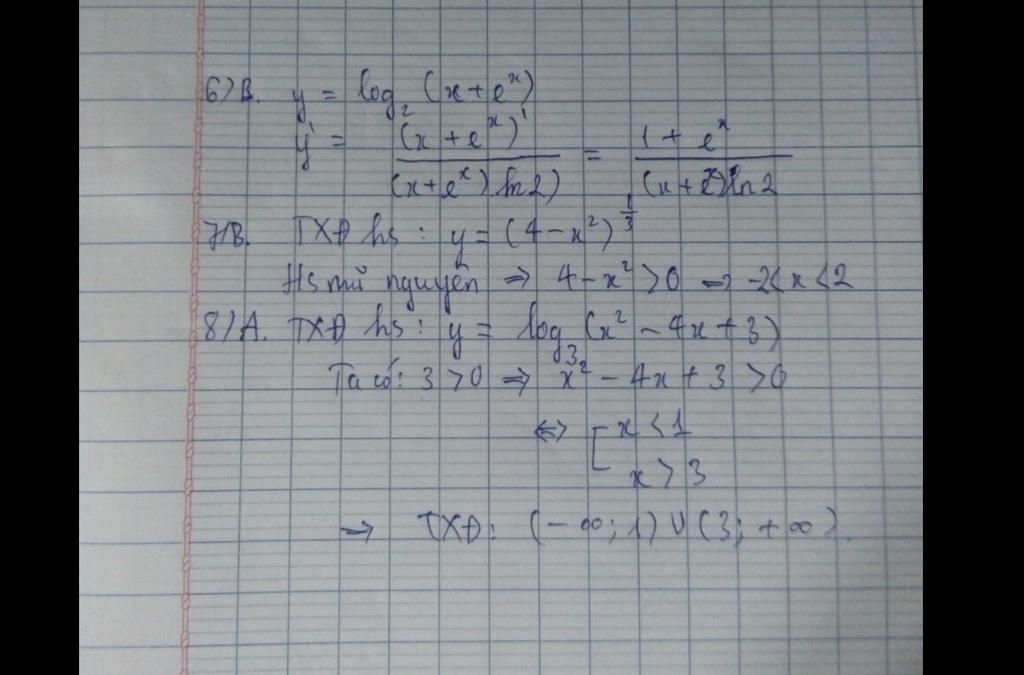 6) B. y = log₂ (x + eˣ)
y' = (x + eˣ)' / (x + eˣ) ln 2) = 1 + eˣ / (x + eˣ) ln 2
7) B. TXĐ hs : y = (4 - x²)^(1/3)
Hs mũ nguyên ⇒ 4 - x² > 0 ⇒ -2 < x < 2
8) A. TXĐ hs : y = log₃ (x² - 4x + 3)
Ta có : 3 > 0 ⇒ x² - 4x + 3 > 0
⇔ [ x < 1
x > 3
⇒ TXĐ : (- ∞ ; 1) ∪ (3 ; + ∞).